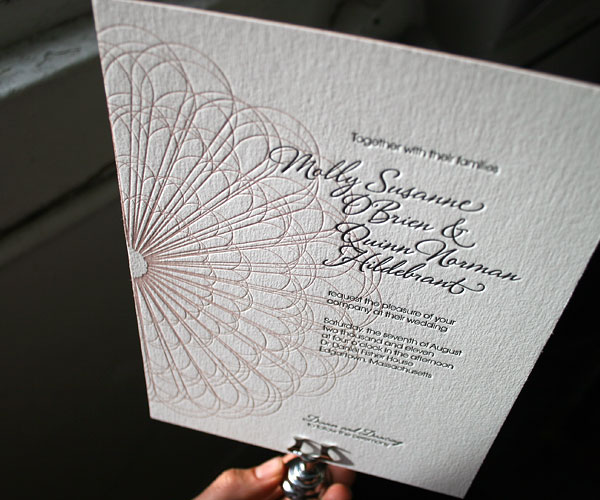 Together with their families
Molly Susanne
O'Brien &
Quinn Norman
Hildebrant
request the pleasure of your
company at their wedding
Saturday, the seventh of August
two thousand and eleven
at four o'clock in the afternoon
Dr. Daniel Fisher House
Edgartown, Massachusetts
Dinner and Dancing
to follow the ceremony